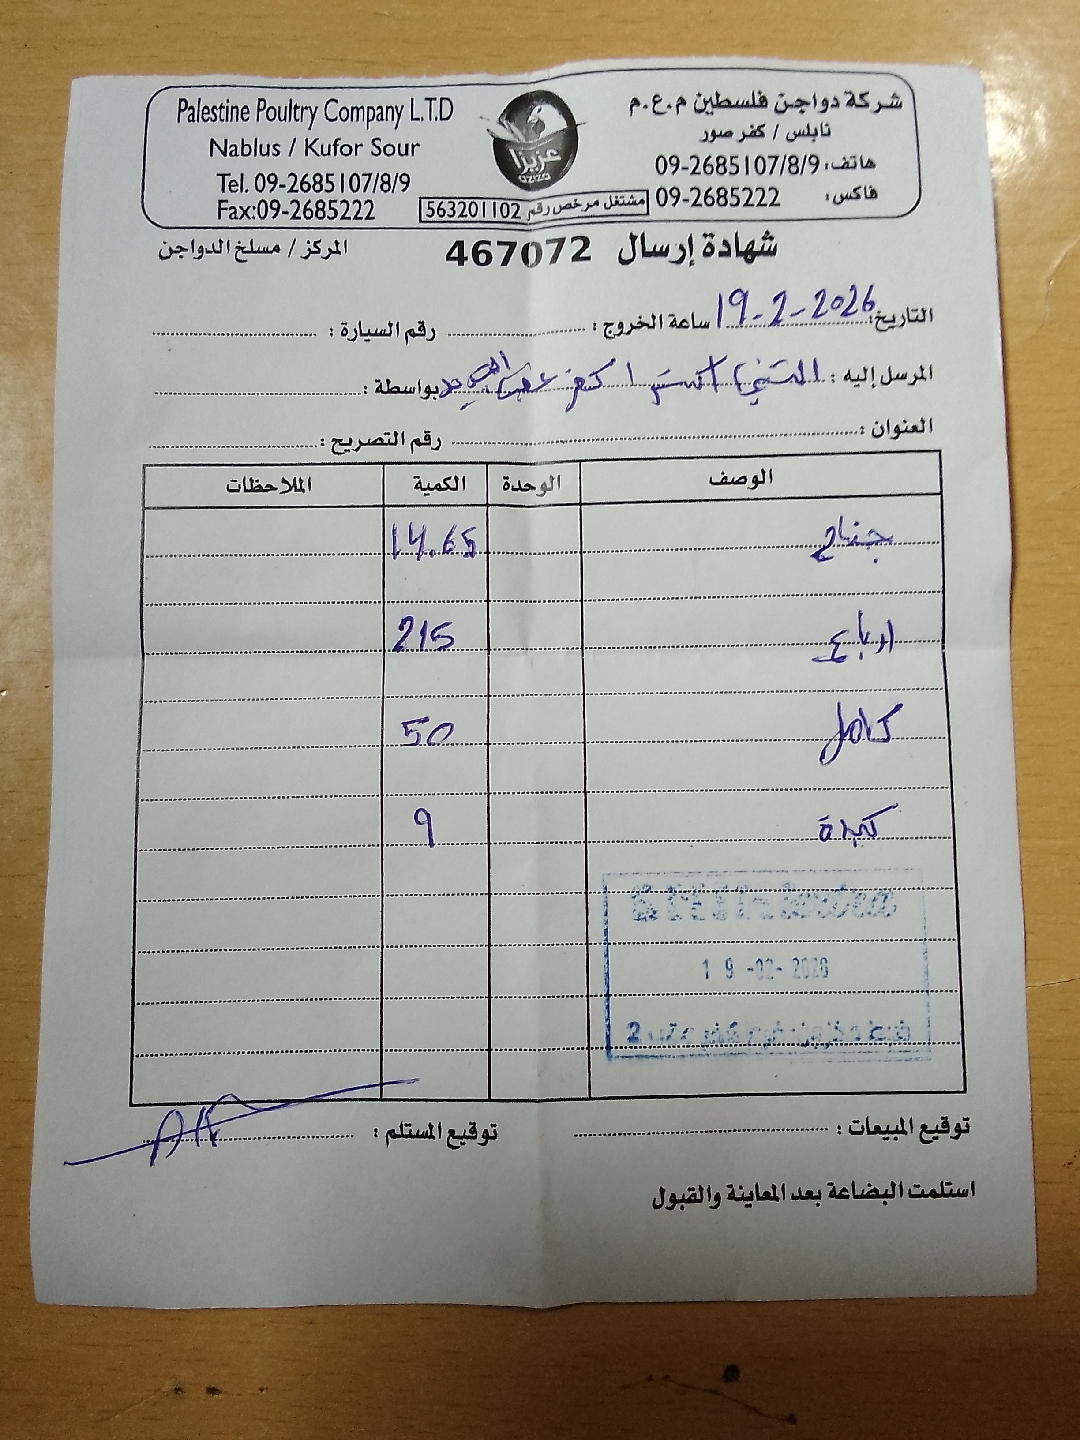 Palestine Poultry Company L.T.D
Nablus / Kufor Sour
Tel. 09-2685107/8/9
Fax:09-2685222
عزيزا
AZIZA
شركة دواجن فلسطين م.ع.م
نابلس / كفر صور
هاتف: 09-2685107/8/9
فاكس: 09-2685222
مشتغل مرخص رقم 563201102
شهادة إرسال 467072 المركز / مسلخ الدواجن
التاريخ: 19-2-2026 ساعة الخروج: رقم السيارة:
المرسل إليه: بواسطة:
العنوان: رقم التصريح:
الوصف الوحدة الكمية الملاحظات
جناح 14.65
ارباع 215
كامل 50
كبدة 9
19-02-2026
توقيع المبيعات: توقيع المستلم:
استلمت البضاعة بعد المعاينة والقبول